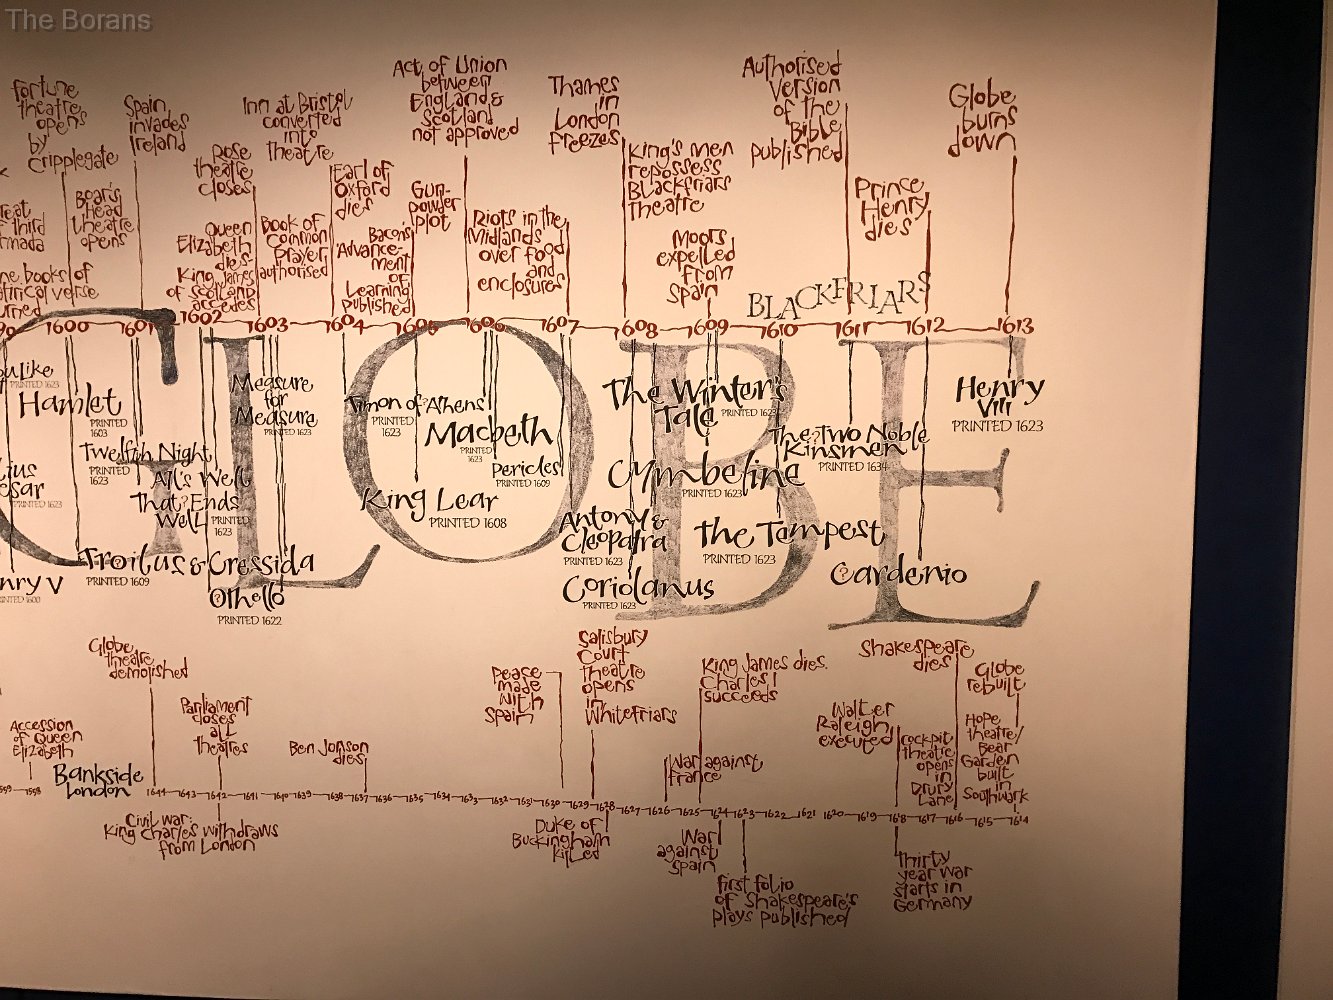 The Borans
Fortune
theatre
opens
by
Cripplegate
Spain
invades
Ireland
Inn at Bristol
converted
into
Theatre
Act of Union
between
England &
Scotland
not approved
Thames
in
London
freezes
Authorised
Version
of the
Bible
published
Globe
burns
down
Rose
theatre
closes
Earl of
Oxford
dies
Gun-
powder
plot
King's men
repossess
Blackfriars
Theatre
Prince
Henry
dies
Boar's
Head
theatre
opens
Queen
Elizabeth
dies
King James
of Scotland
accedes
Book of
Common
prayer
authorised
Bacon's
'Advance-
ment
of
Learning'
published
Riots in the
Midlands
over food
and
enclosures
Moors
expelled
from
Spain
of third
books of
verse
BLACKFRIARS
1600 1601 1602 1603 1604 1605 1606 1607 1608 1609 1610 1611 1612 1613
GLOBE
Like
PRINTED 1623
Hamlet
PRINTED
1603
Measure
for
Measure
PRINTED 1623
Timon of Athens
PRINTED
1623
Macbeth
PRINTED
1623
The Winter's
Tale
PRINTED 1623
Henry
VIII
PRINTED 1623
Twelfth Night
PRINTED
1623
All's Well
That Ends
Well
PRINTED
1623
Pericles
PRINTED 1609
The Two Noble
Kinsmen
PRINTED 1634
Cymbeline
PRINTED 1623
PRINTED 1623
King Lear
PRINTED 1608
Antony &
Cleopatra
PRINTED 1623
The Tempest
PRINTED 1623
Troilus & Cressida
PRINTED 1609
Othello
PRINTED 1622
Coriolanus
PRINTED 1623
?Cardenio
nry V
PRINTED 1600
Globe
theatre
demolished
Salisbury
Court
theatre
opens
in
Whitefriars
Peace
made
with
Spain
King James dies.
Charles I
succeeds
Shakespeare
dies
Globe
rebuilt
Accession
of Queen
Elizabeth
Parliament
closes
all
theatres
Ben Jonson
dies
War against
France
Walter
Raleigh
executed
Cockpit
theatre
opens
in
Drury
Lane
Hope
theatre/
Bear
Garden
built
in
Southwark
Bankside
London
1558 1644 1643 1642 1641 1640 1639 1638 1637 1636 1635 1634 1633 1632 1631 1630 1629 1628 1627 1626 1625 1624 1623 1622 1621 1620 1619 1618 1617 1616 1615 1614
Civil war:
King Charles withdraws
from London
Duke of
Buckingham
killed
War
against
Spain
First folio
of Shakespeare's
plays published
Thirty
year war
starts in
Germany